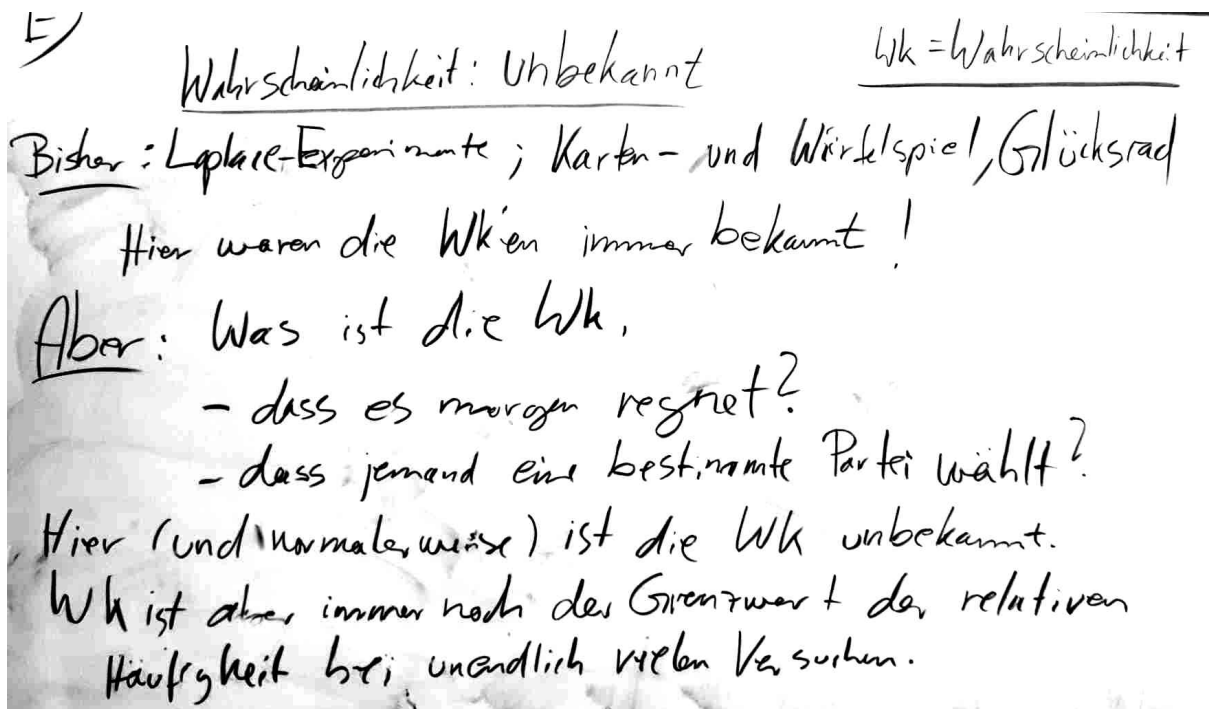 E)
Wahrscheinlichkeit: Unbekannt
Wk = Wahrscheinlichkeit
Bisher: Laplace-Experimente; Karten- und Würfelspiel, Glücksrad
Hier waren die Wk'en immer bekannt!
Aber: Was ist die Wk,
- dass es morgen regnet?
- dass jemand eine bestimmte Partei wählt?
Hier (und normalerweise) ist die Wk unbekannt.
Wk ist aber immer noch der Grenzwert der relativen
Häufigkeit bei unendlich vielen Versuchen.